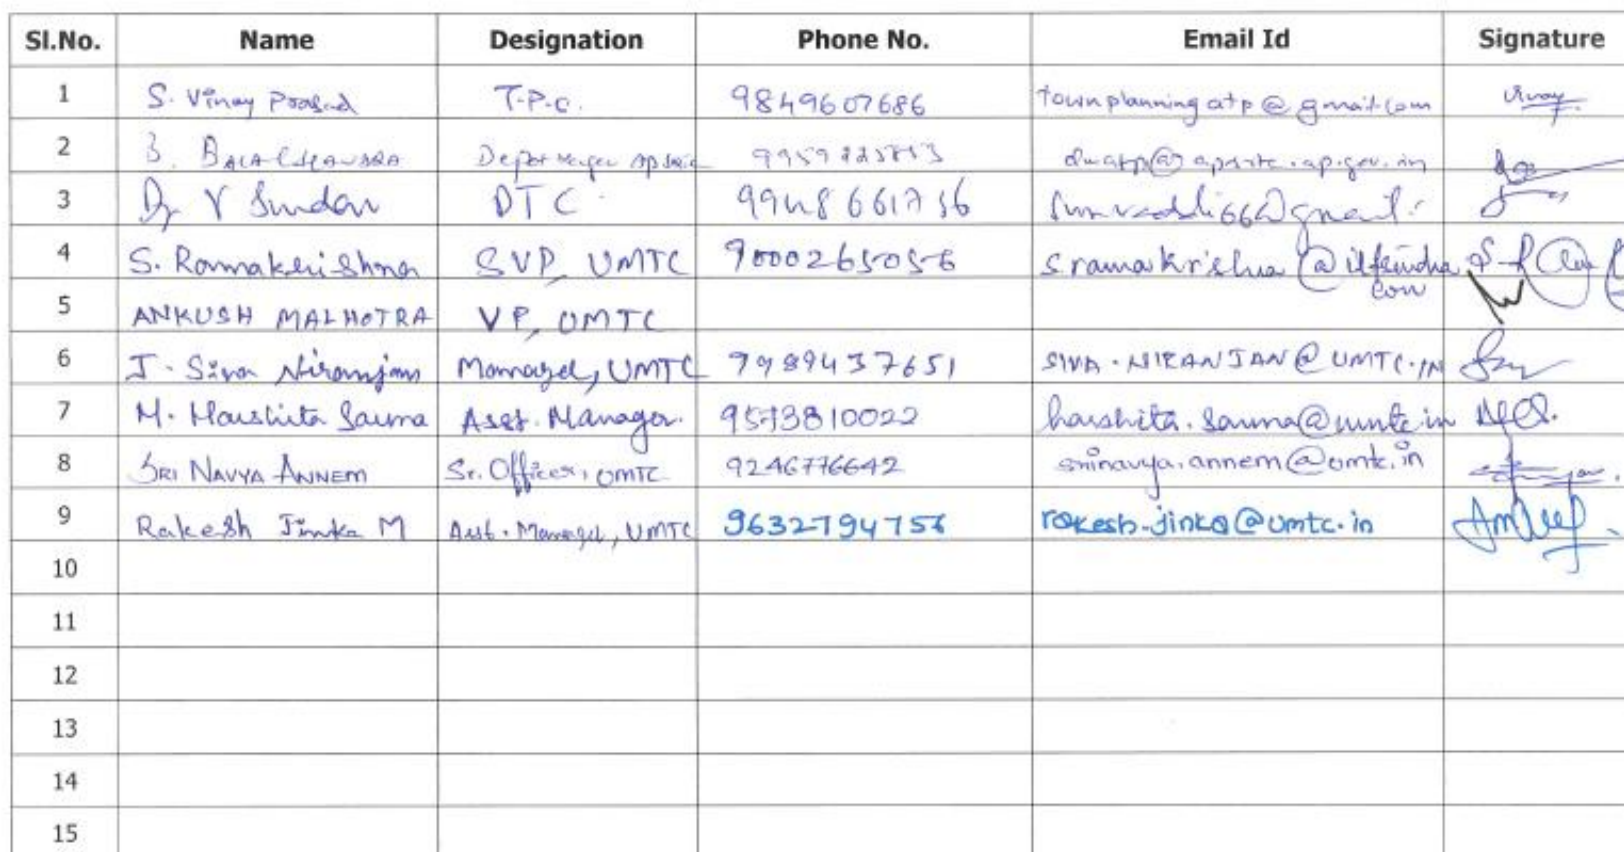 Sl.No. Name Designation Phone No. Email Id Signature
1 S. Vinay Prasad T.P.O. 9849607686 townplanningatp@gmail.com Vinay
2 B. Depot Manager
3 V Sundar DTC
4 S. Ramakrishna SVP, UMTC 9000265056
5 ANKUSH MALHOTRA VP, UMTC
6 J. Siva Niranjan Manager, UMTC 7989437651 SIVA.NIRANJAN@UMTC.IN
7 M. Harshita Sauma Asst. Manager. 9573810022 harshita.sauma@umtc.in
8 SRI NAVYA ANNEM Sr. Officer, UMTC 9246776642 srinavya.annem@umtc.in
9 Rakesh Jinka M Asst. Manager, UMTC 9632794756 rakesh.jinka@umtc.in
10
11
12
13
14
15